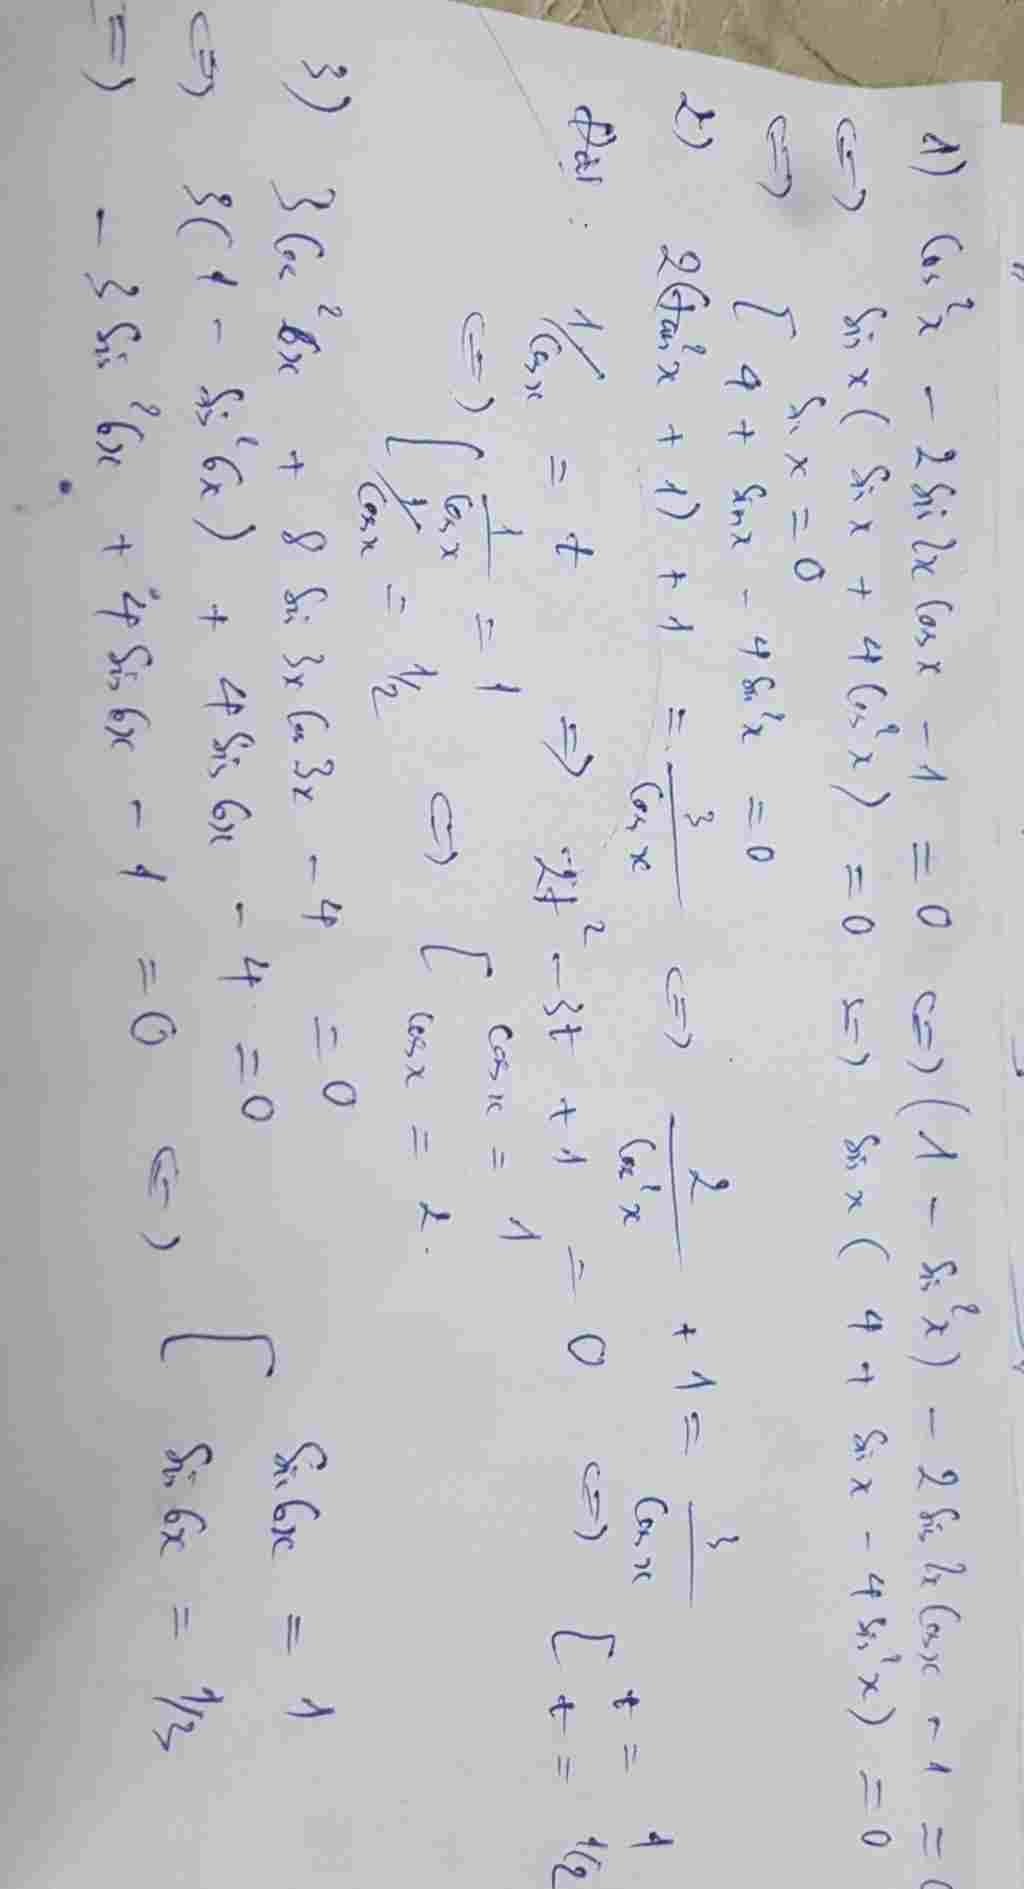 1) cos²x - 2 sin 2x cos x - 1 = 0 <=> (1 - sin²x) - 2 sin 2x cos x - 1 =
<=> sin x ( sin x + 4 cos²x ) = 0 <=> sin x ( 4 + sin x - 4 sin²x ) = 0
<=> [ sin x = 0
4 + sin x - 4 sin²x = 0
2) 2(tan²x + 1) + 1 = 3/cos x <=> 2/cos²x + 1 = 3/cos x
Đặt: 1/cos x = t => 2t² - 3t + 1 = 0 <=> [ t = 1
t = 1/2
<=> [ 1/cos x = 1
1/cos x = 1/2 <=> [ cos x = 1
cos x = 2.
3) 3 cos²6x + 8 sin 3x cos 3x - 4 = 0
<=> 3(1 - sin²6x) + 4 sin 6x - 4 = 0
=> - 3 sin²6x + 4 sin 6x - 1 = 0 <=> [ sin 6x = 1
sin 6x = 1/3